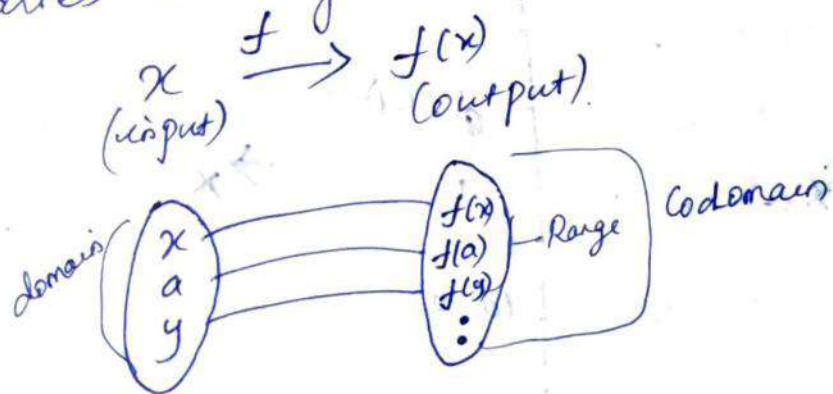 x f→ f(x)
(input) (output).
domain
x
a
y
f(x)
f(a)
f(y)
Range
Codomain